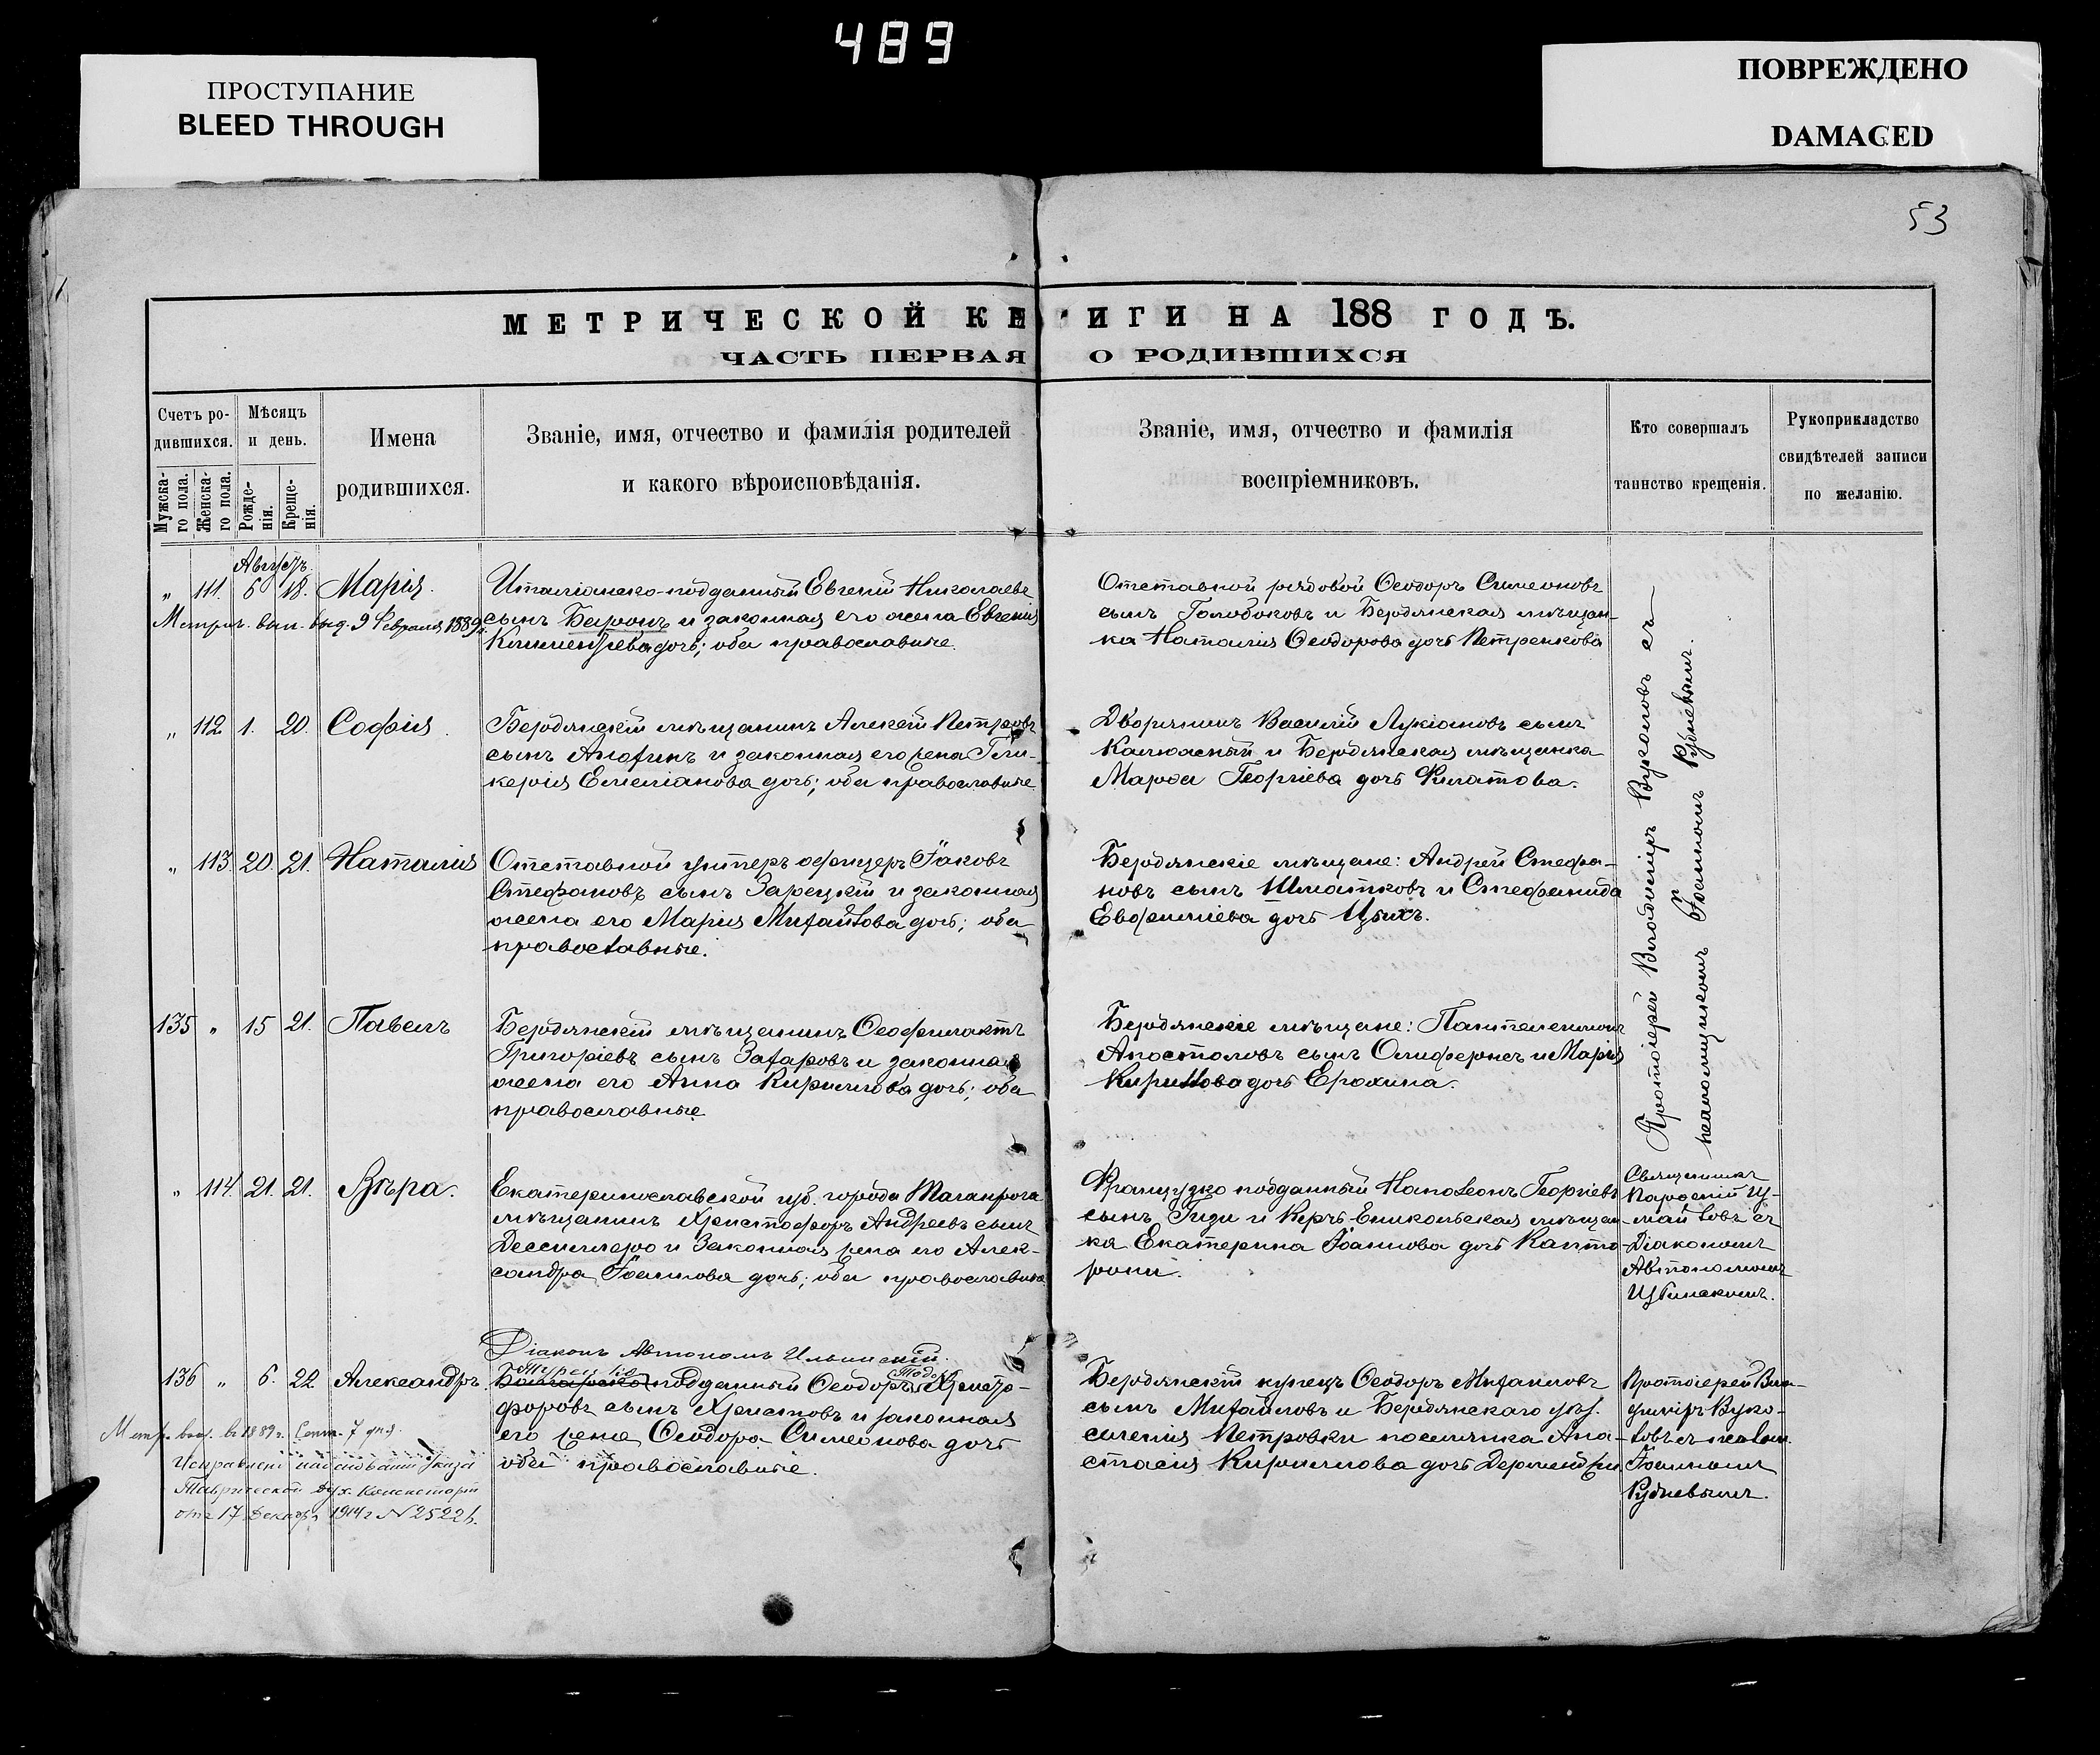 489
ПРОСТУПАНИЕ
BLEED THROUGH
ПОВРЕЖДЕНО
DAMAGED
53
МЕТРИЧЕСКОЙ КНИГИ НА 188 ГОДЪ.
ЧАСТЬ ПЕРВАЯ О РОДИВШИХСЯ
Счетъ ро-
дившихся.
Мужска-
го пола.
Женска-
го пола.
Мѣсяцъ
и день.
Рожде-
нія.
Креще-
нія.
Имена
родившихся.
Званіе, имя, отчество и фамилія родителей
и какого вѣроисповѣданія.
Званіе, имя, отчество и фамилія
воспріемниковъ.
Кто совершалъ
таинство крещенія.
Рукоприкладство
свидѣтелей записи
по желанію.
Августъ.
„ 111. 6 18. Марія.
Метрич. вып. выд. 9 Февраля 1889 г.
Италіанско-подданный Евгеній Николаевъ
сынъ Баронъ и законная его жена Евгенія
Климентьева дочь; оба православные.
Отставной рядовой Ѳеодоръ Симеоновъ
сынъ Голобоковъ и Бердянская мѣщан-
ка Наталія Ѳеодорова дочь Петренкова
„ 112 1. 20. Софія.
Бердянскій мѣщанинъ Алексѣй Петровъ
сынъ и законная его жена Гли-
керія Емеліанова дочь; оба православные
Дворянинъ Василій Лукіановъ сынъ
и Бердянская мѣщанка
Марѳа Георгіева дочь Филатова.
„ 113. 20. 21. Наталія
Отставной унтеръ офицеръ Іаковъ
Стефановъ сынъ Зарецкій и законная
жена его Марія Михайлова дочь; оба
православные.
Бердянскіе мѣщане: Андрей Стефа-
новъ сынъ Шматковъ и Стефанида
Евфиміева дочь
135 „ 15 21. Павелъ
Бердянскій мѣщанинъ Ѳеофилактъ
Григоріевъ сынъ Захаровъ и законная
жена его Анна Кириллова дочь; оба
православные
Бердянскіе мѣщане: Пантелеимонъ
Апостоловъ сынъ и Марія
Кириллова дочь Ерохина.
Протоіерей Владиміръ Вуколовъ съ
псаломщикомъ Іоанномъ Рудневымъ.
„ 114. 21. 21. Вѣра.
Екатеринославской губ. города Таганрога
мѣщанинъ Христофоръ Андреевъ сынъ
и законная жена его Алек-
сандра Іоаннова дочь; оба православные
Французко подданный Наполеонъ Георгіевъ
сынъ и Керчь-Еникольская мѣщан-
ка Екатерина Іоаннова дочь
Священникъ
съ
Діакономъ
Автономомъ
Ильинскимъ.
Діаконъ Автономъ Ильинскій.
136 „ 6. 22 Александръ.
Турецко
Болгарско подданный Ѳеодоръ Христо-
форовъ сынъ Христовъ и законная
его жена Ѳеодора Симеонова дочь
оба православные.
Бердянскій купецъ Ѳеодоръ Михаиловъ
сынъ Михайловъ и Бердянскаго уѣз.
селенія Петровки поселянка Ана-
стасія Кириллова дочь
Протоіерей Вла-
диміръ Вуко-
ловъ съ псалом.
Іоанномъ
Рудневымъ.
Метр. выд. въ 1889 г. Сент. 7 дня.
Исправлено на основаніи Указа
Таврической Дух. Консисторіи
отъ 17 Декабря 1914 г №